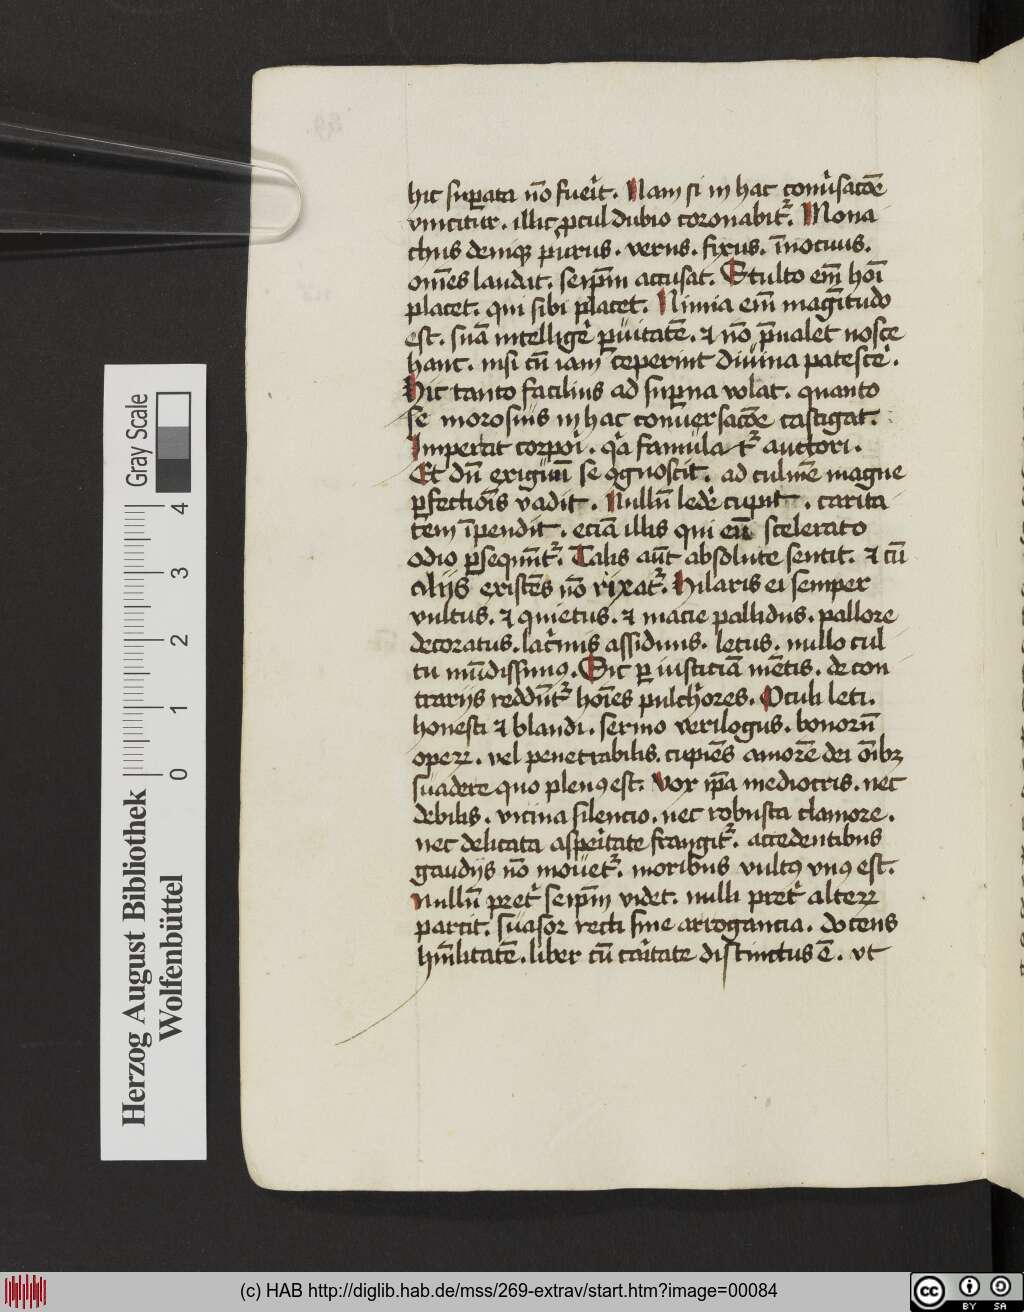 hic suꝑata nō fueri̇t. Nam si in hac conu̇sacōe
vincitur. illic ꝓcul dubio coronabit᷑. Mona
chus deniqꝫ purus. verus. fixus. īnocuus.
om̄es laudat. seip̄m accusat. Stulto em̄ hoī
placet. qui sibi placet. Nimia em̄ magnitudo
est. suā intelligē ꝑuitatē. ⁊ nō p̄ualet nosce
hanc. nisi cū iam ceperint diuina patescē.
Hic tanto facilius ad suꝑna volat. quanto
se morosius in hac conuersacōe castigat.
Imperat corpori. qͣ famulat᷑ auctori.
Et dū exiguū se ꝯgnoscit. ad culmē magne
ꝑfectiōis vadit. Nullū ledē cupit. carita
tem īpendit. eciā illis qui eū scelerato
odio ꝑsequūt᷑. Talis aūt absolute sentit. ⁊ cū
alijs existēs nō rixat᷑. Hilaris ei semper
vultus. ⁊ quietus. ⁊ macie pallidus. pallore
decoratus. lacrimis assiduus. letus. nullo cul
tu mūdissimꝰ. Sic ꝑ iusticiā mētis. de con
trarijs reddūt᷑ hoīes pulchriores. Oculi leti.
honesti ⁊ blandi. sermo verilogus. bonorū
operꝝ. vel penetrabilis. cupiēs amorē dei oībꝫ
suadere quo plenꝰ est. Vox ip̄a mediocris. nec
debilis. vicina silencio. nec robusta clamore.
nec delicata asperitate frangit᷑. accedentibus
gaudijs nō mouet᷑. moribus vultꝰ vnꝰ est.
Nullū pret᷑ seip̄m videt. nulli pret᷑ alterꝝ
parcit. suasor recti sine arrogancia. docens
hūilitatē. liber cū caritate distinctus ē. vt
Gray Scale
0 1 2 3 4
Herzog August Bibliothek
Wolfenbüttel
(c) HAB http://diglib.hab.de/mss/269-extrav/start.htm?image=00084
cc BY SA